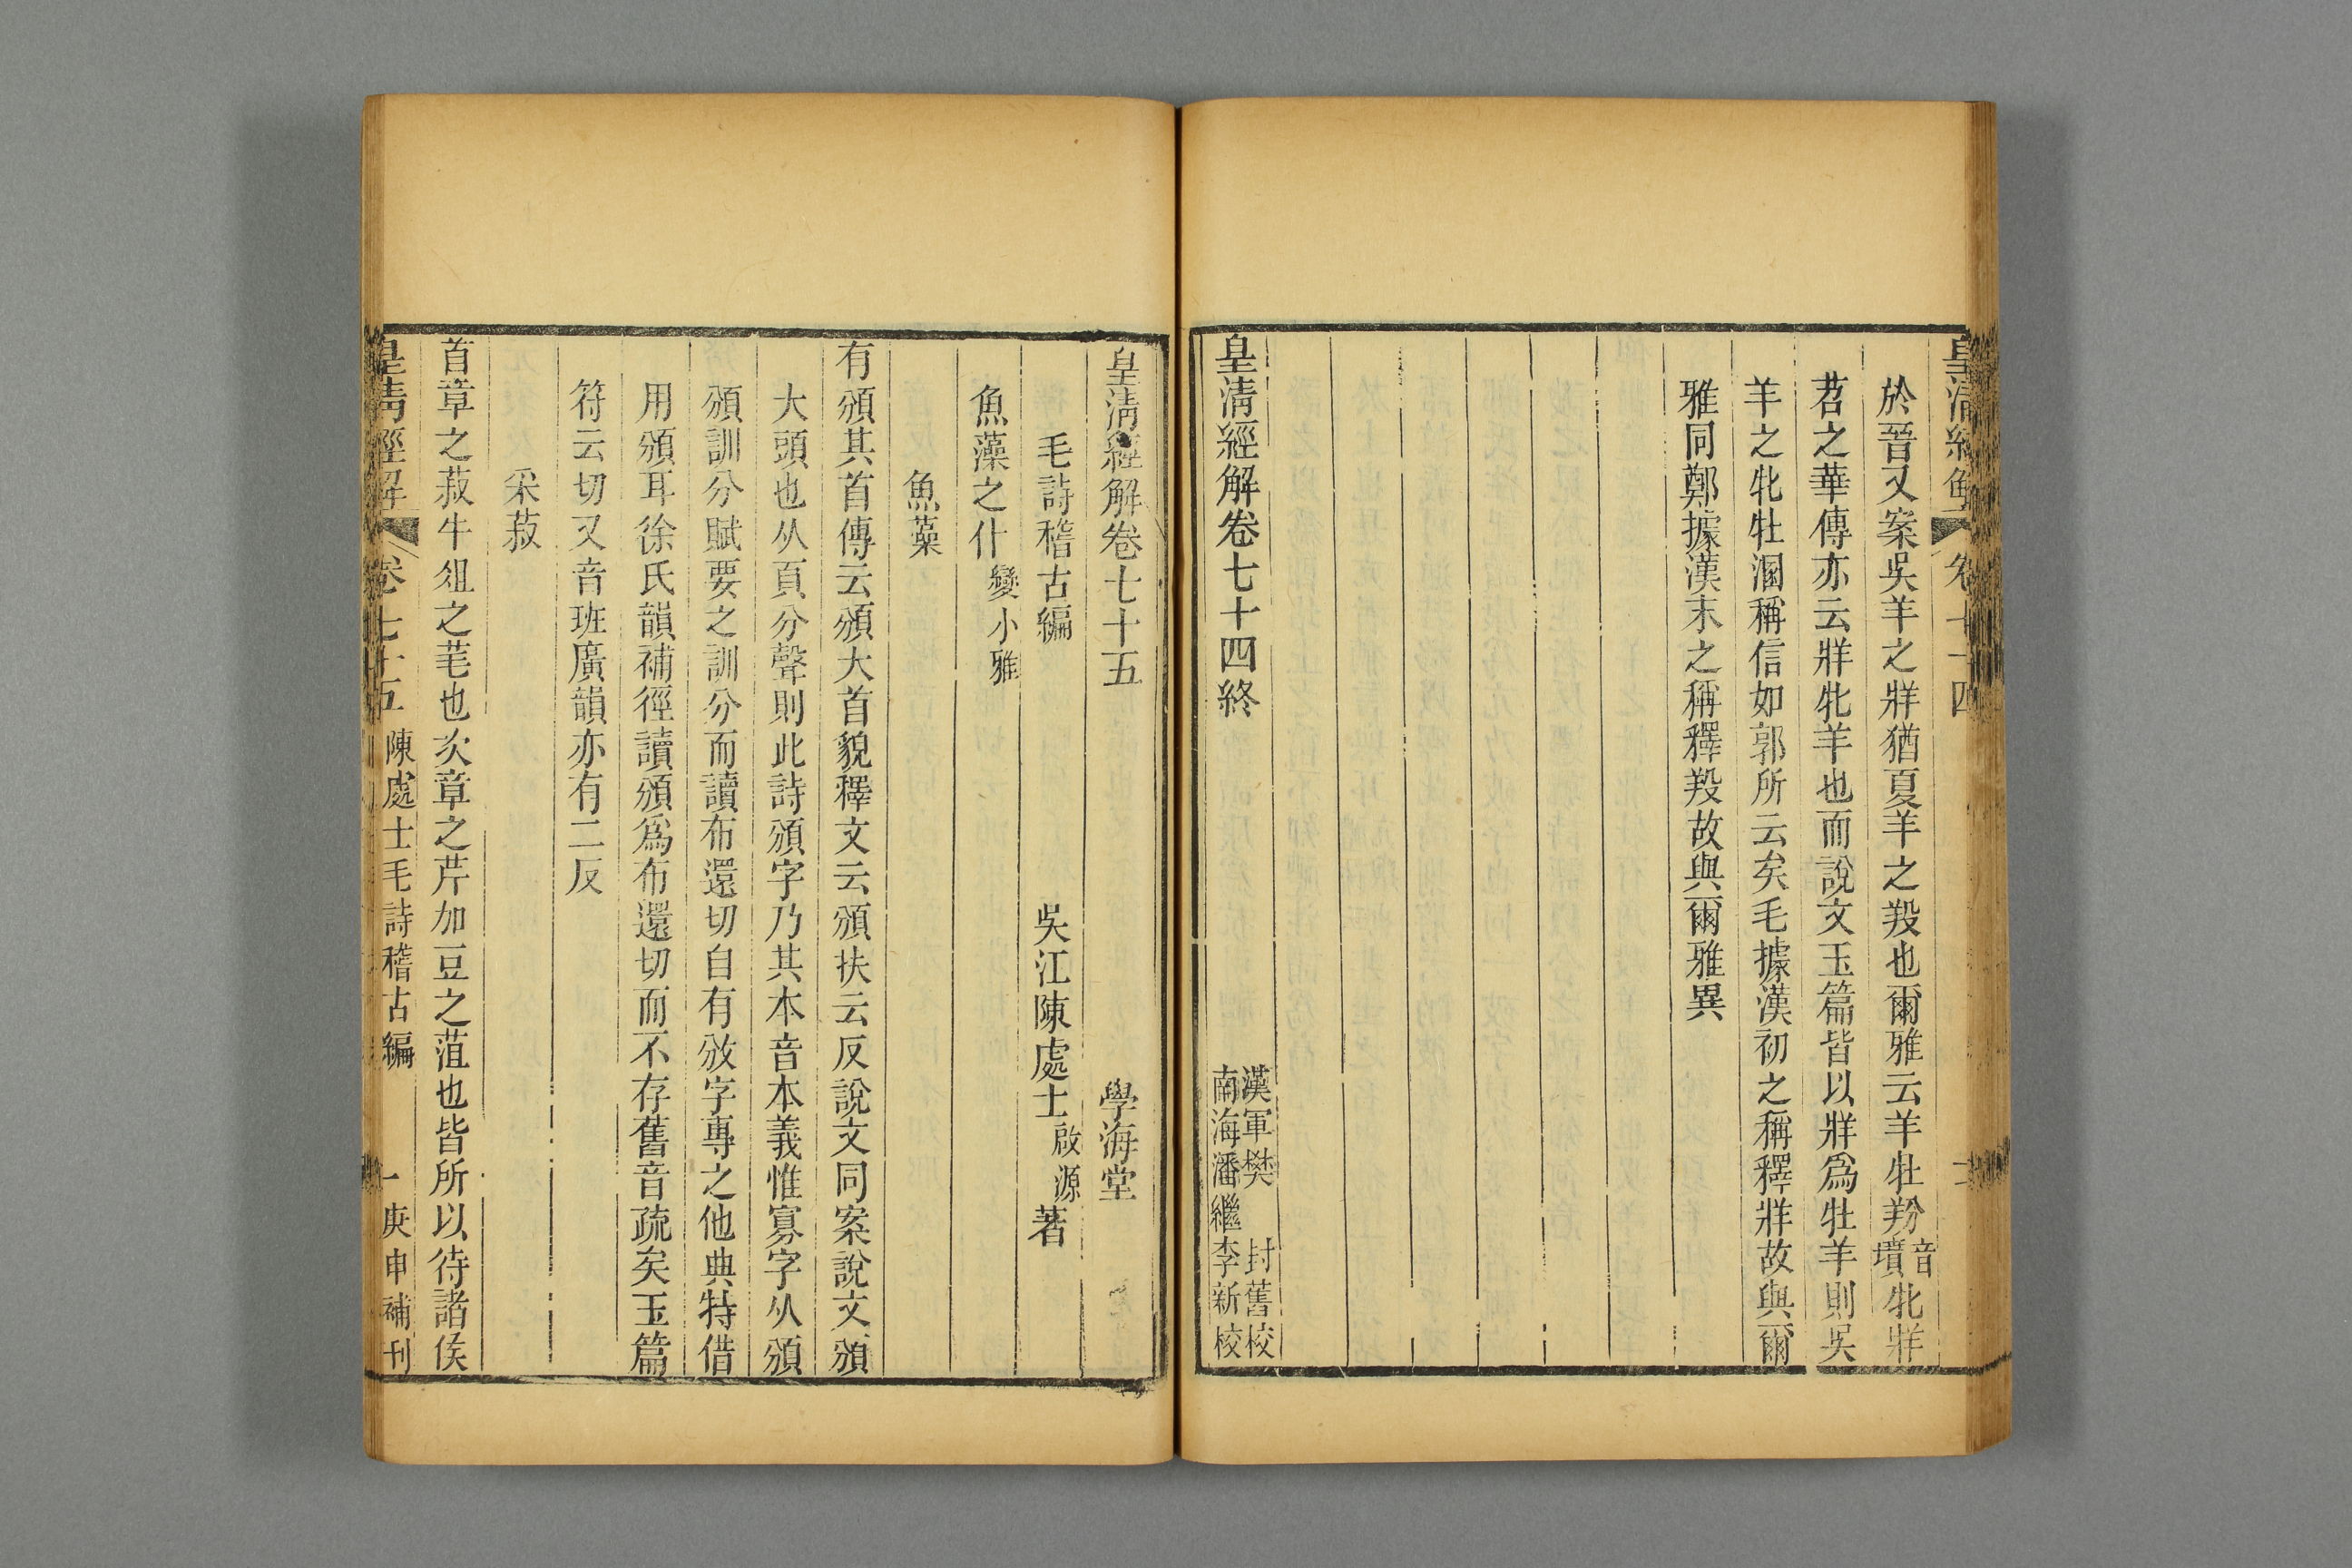 皇清經解 卷七十四
於晉又案吳羊之牂猶夏羊之羖也爾雅云羊牡羒音墳牝牂
苕之華傳亦云牂牝羊也而說文玉篇皆以牂爲牡羊則吳
羊之牝牡溷稱信如郭所云矣毛據漢初之稱釋牂故與爾
雅同鄭據漢末之稱釋羖故與爾雅異
漢軍樊 封舊校
南海潘繼李新校
皇清經解卷七十四終
皇清經解卷七十五 學海堂
毛詩稽古編 吳江陳處士啟源著
魚藻之什變小雅
魚藻
有頒其首傳云頒大首貌釋文云頒扶云反說文同案說文頒
大頭也从頁分聲則此詩頒字乃其本音本義惟寡字从頒
頒訓分賦要之訓分而讀布還切自有攽字專之他典特借
用頒耳徐氏韻補徑讀頒爲布還切而不存舊音疏矣玉篇
符云切又音班廣韻亦有二反
采菽
首章之菽牛俎之芼也次章之芹加豆之菹也皆所以待諸侯
皇清經解 卷七十五 陳處士毛詩稽古編 一 庚申補刊